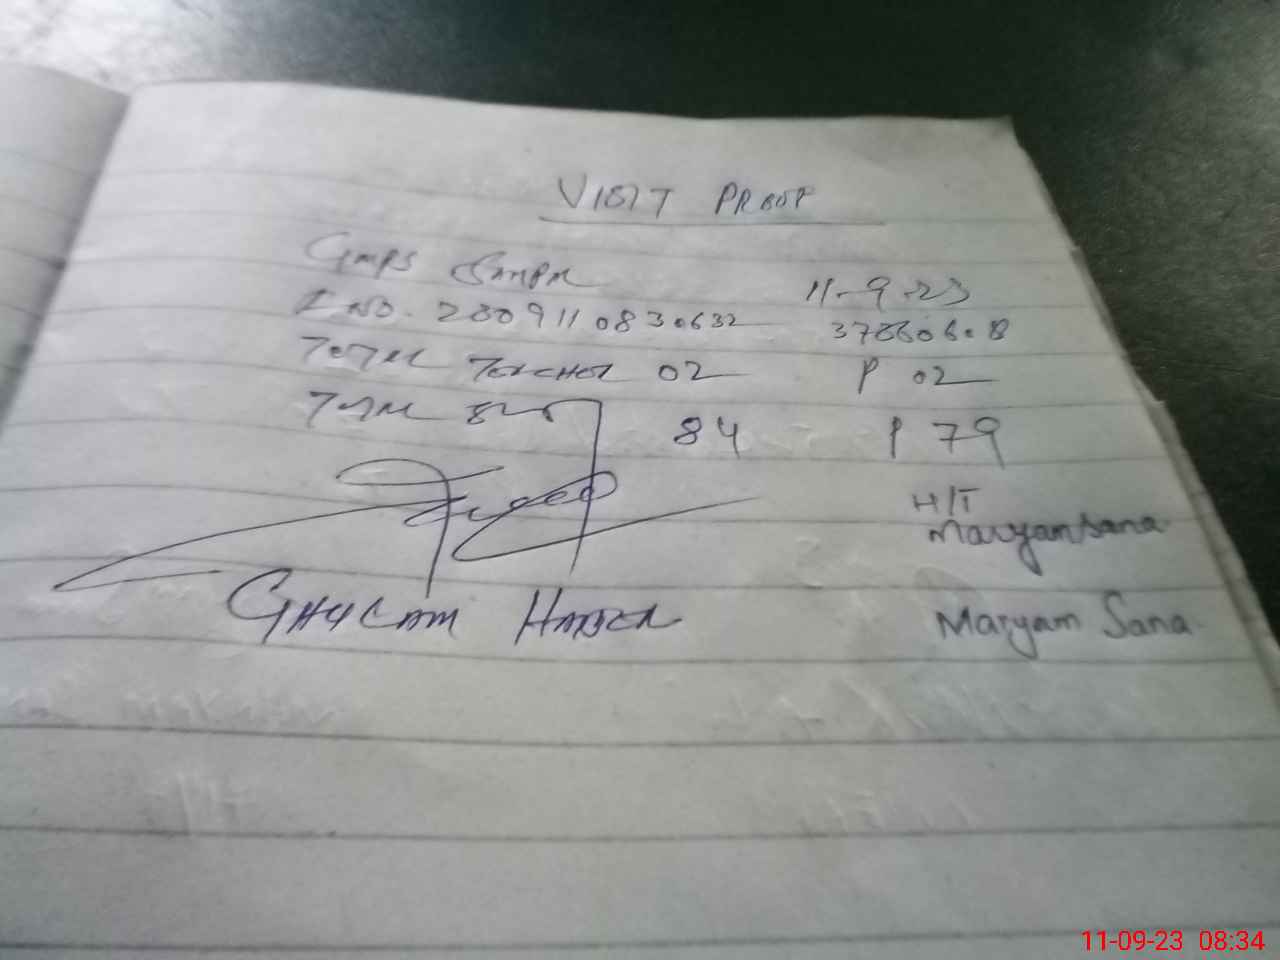 VISIT PROOF
GMPS
11-9-23
NO. 2809110830632
TOTAL TEACHER 02 P 02
TOTAL 84 P 79
H/T
Maryam Sana
GHULAM
Maryam Sana
11-09-23 08:34